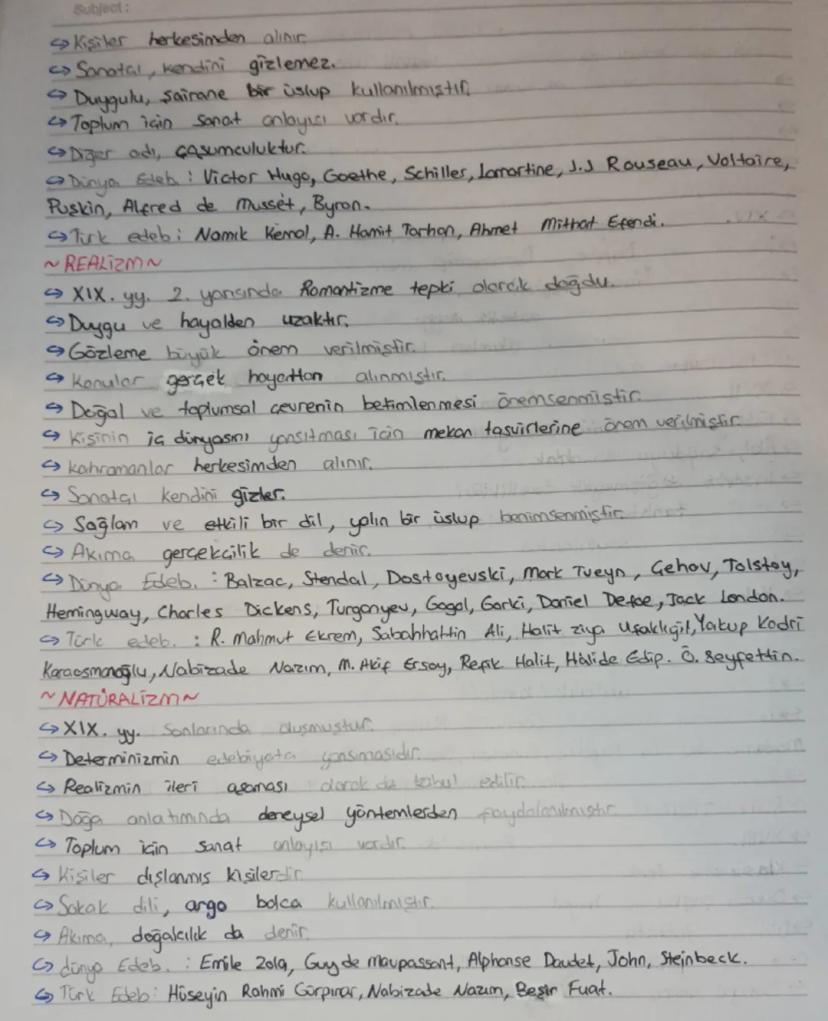 Subject:
↪ Kişiler herkesimden alınır.
↪ Sanatçı, kendini gizlemez.
↪ Duygulu, şairane bir üslup kullanılmıştır.
↪ Toplum için sanat anlayışı vardır.
↪ Diğer adı, coşumculuktur.
↪ Dünya Edeb : Victor Hugo, Goethe, Schiller, Lamartine, J.J Rouseau, Voltaire,
Puşkin, Alfred de Musset, Byron.
↪ Türk edeb : Namık Kemal, A. Hamit Tarhan, Ahmet Mithat Efendi.
~ REALİZM ~
↪ XIX. yy. 2. yarısında Romantizme tepki olarak doğdu.
↪ Duygu ve hayalden uzaktır.
↪ Gözleme büyük önem verilmiştir.
↪ Konular gerçek hayattan alınmıştır.
↪ Doğal ve toplumsal çevrenin betimlenmesi önemsenmiştir.
↪ Kişinin iç dünyasını yansıtması için mekan tasvirlerine önem verilmiştir.
↪ Kahramanlar herkesimden alınır.
↪ Sanatçı kendini gizler.
↪ Sağlam ve etkili bir dil, yalın bir üslup benimsenmiştir.
↪ Akıma gerçekcilik de denir.
↪ Dünya Edeb. : Balzac, Stendal, Dostoyevski, Mark Tveyn, Çehov, Tolstoy,
Hemingway, Charles Dickens, Turganyev, Gogol, Gorki, Daniel Defoe, Jack London.
↪ Türk edeb. : R. Mahmut Ekrem, Sabahhattin Ali, Halit ziya Uşaklıgil, Yakup Kadri
Karaosmanoğlu, Nabizade Nazım, M. Akif Ersoy, Refik Halit, Halide Edip. Ö. Seyfettin.
~ NATÜRALİZM ~
↪ XIX. yy. Sonlarında oluşmuştur.
↪ Determinizmin edebiyata yansımasıdır.
↪ Realizmin ileri aşaması olarak da kabul edilir.
↪ Doğa anlatımında deneysel yöntemlerden faydalanılmıştır.
↪ Toplum için sanat anlayışı vardır.
↪ Kişiler dışlanmış kişilerdir.
↪ Sokak dili, argo bolca kullanılmıştır.
↪ Akıma, doğalcılık da denir.
↪ dünya Edeb. : Emile Zola, Guy de Maupassant, Alphonse Daudet, John, Steinbeck.
↪ Türk Edeb : Hüseyin Rahmi Gürpınar, Nabizade Nazım, Beşir Fuat.